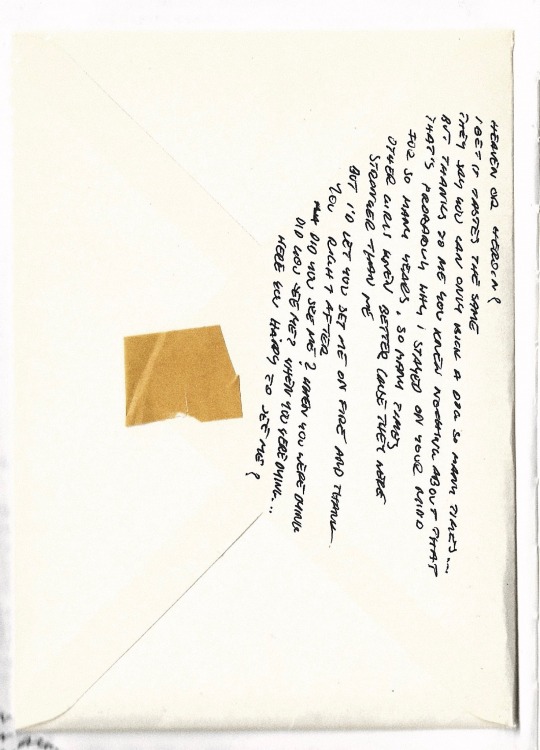 HEAVEN OR HEROIN?
I BET IT TASTES THE SAME
THEY SAY YOU CAN ONLY KICK A DOG SO MANY TIMES....
BUT THANKS TO ME YOU KNEW NOTHING ABOUT THAT
THAT'S PROBABLY WHY I STAYED ON YOUR MIND
FOR SO MANY YEARS, SO MANY TIMES
OTHER GIRLS KNEW BETTER CAUSE THEY WERE
STRONGER THAN ME
BUT I'D LET YOU SET ME ON FIRE AND THANK
YOU RIGHT AFTER
DID YOU SEE ME? WHEN YOU WERE DYING
DID YOU SEE ME? WHEN YOU WERE DYING...
WERE YOU HAPPY TO SEE ME?